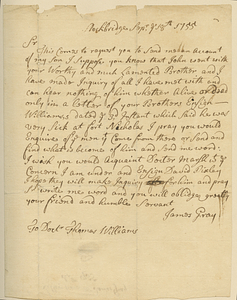 Stockbridge Sept. ye 18th 1755
Sr.
This Comes to request you to Send me an account
of my Son I Suppose you know that John went with
your Worthy and much Lamented Brother and I
have made Inquiry of all I have met with and
can hear nothing of him whether alive or Dead
only in a Letter of your Brothers Ensign
Williams's dated ye Instant which Said he was
very Sick at fort Nicholas I pray you would
Enquire of men yt Come from there or Send and
find what is become of him and Send me word.
I wish you would Acquaint Doctor Marsh of ye
Concern I am under and Ensign David
they will make Inquiry for him and pray
Sr. write me word and you will oblidge greatly
your friend and humble Servant
James Gray
To Doctr. Thomas Williams